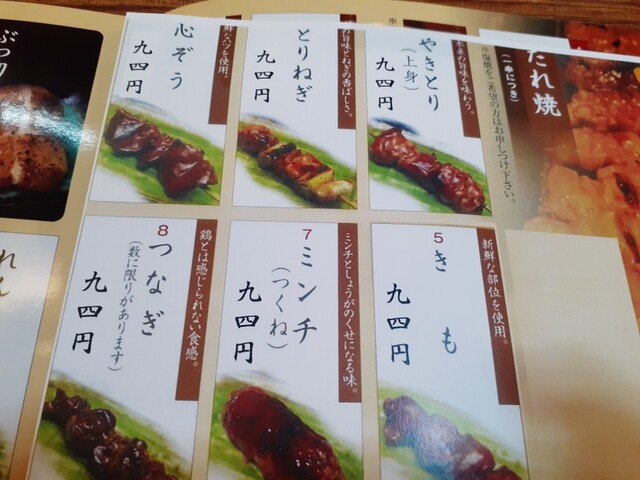 たれ焼
(一串につき)
※塩焼をご希望の方はお申しつけ下さい。
の旨味を味わう。
やきとり
(上身)
九四円
の旨味とねぎの香ばしさ。
とりねぎ
九四円
鮮なハツを使用。
心ぞう
九四円
新鮮な部位を使用。
5
きも
九四円
ミンチとしょうがのくせになる味。
7
ミンチ
(つくね)
九四円
鶏とは感じられない食感。
8
つなぎ
(数に限りがあります)
九四円